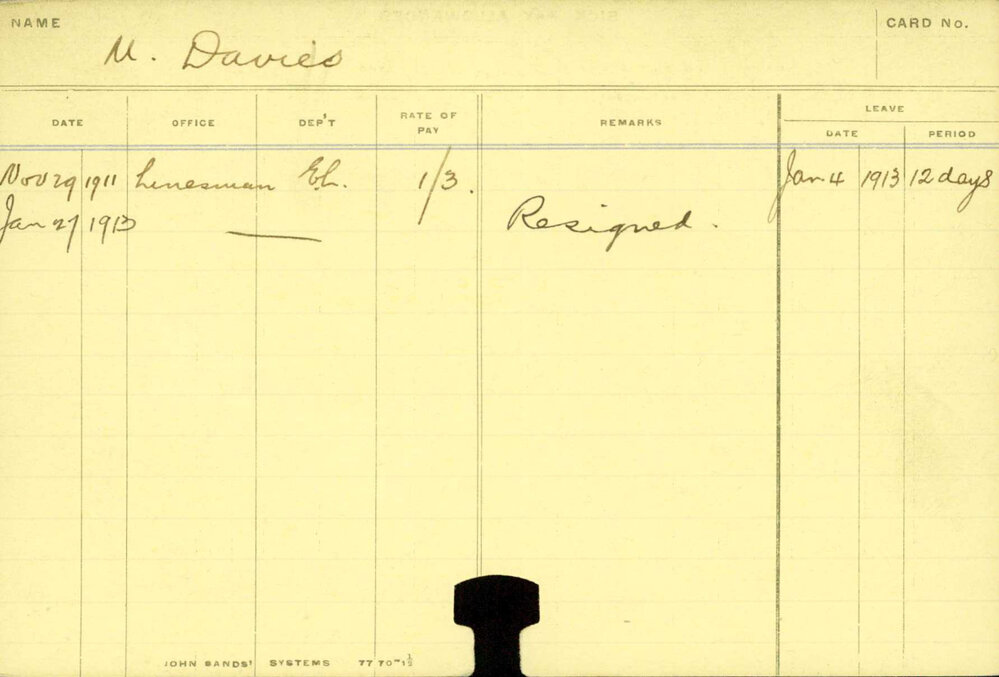 NAME
M. Davies
CARD No.
DATE OFFICE DEP'T RATE OF PAY REMARKS LEAVE
DATE PERIOD
Nov 29 1911 Linesman E.L. 1/3. Jan. 4 1913 12 days
Jan 27 1913 — Resigned.
JOHN SANDS' SYSTEMS 77 70